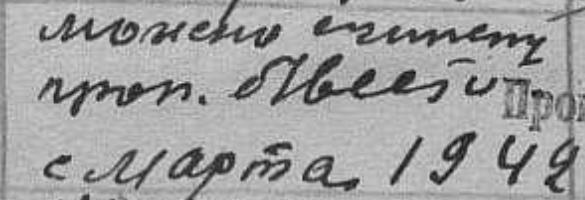 можно считать
проп. б/вести
с марта 1942
Про